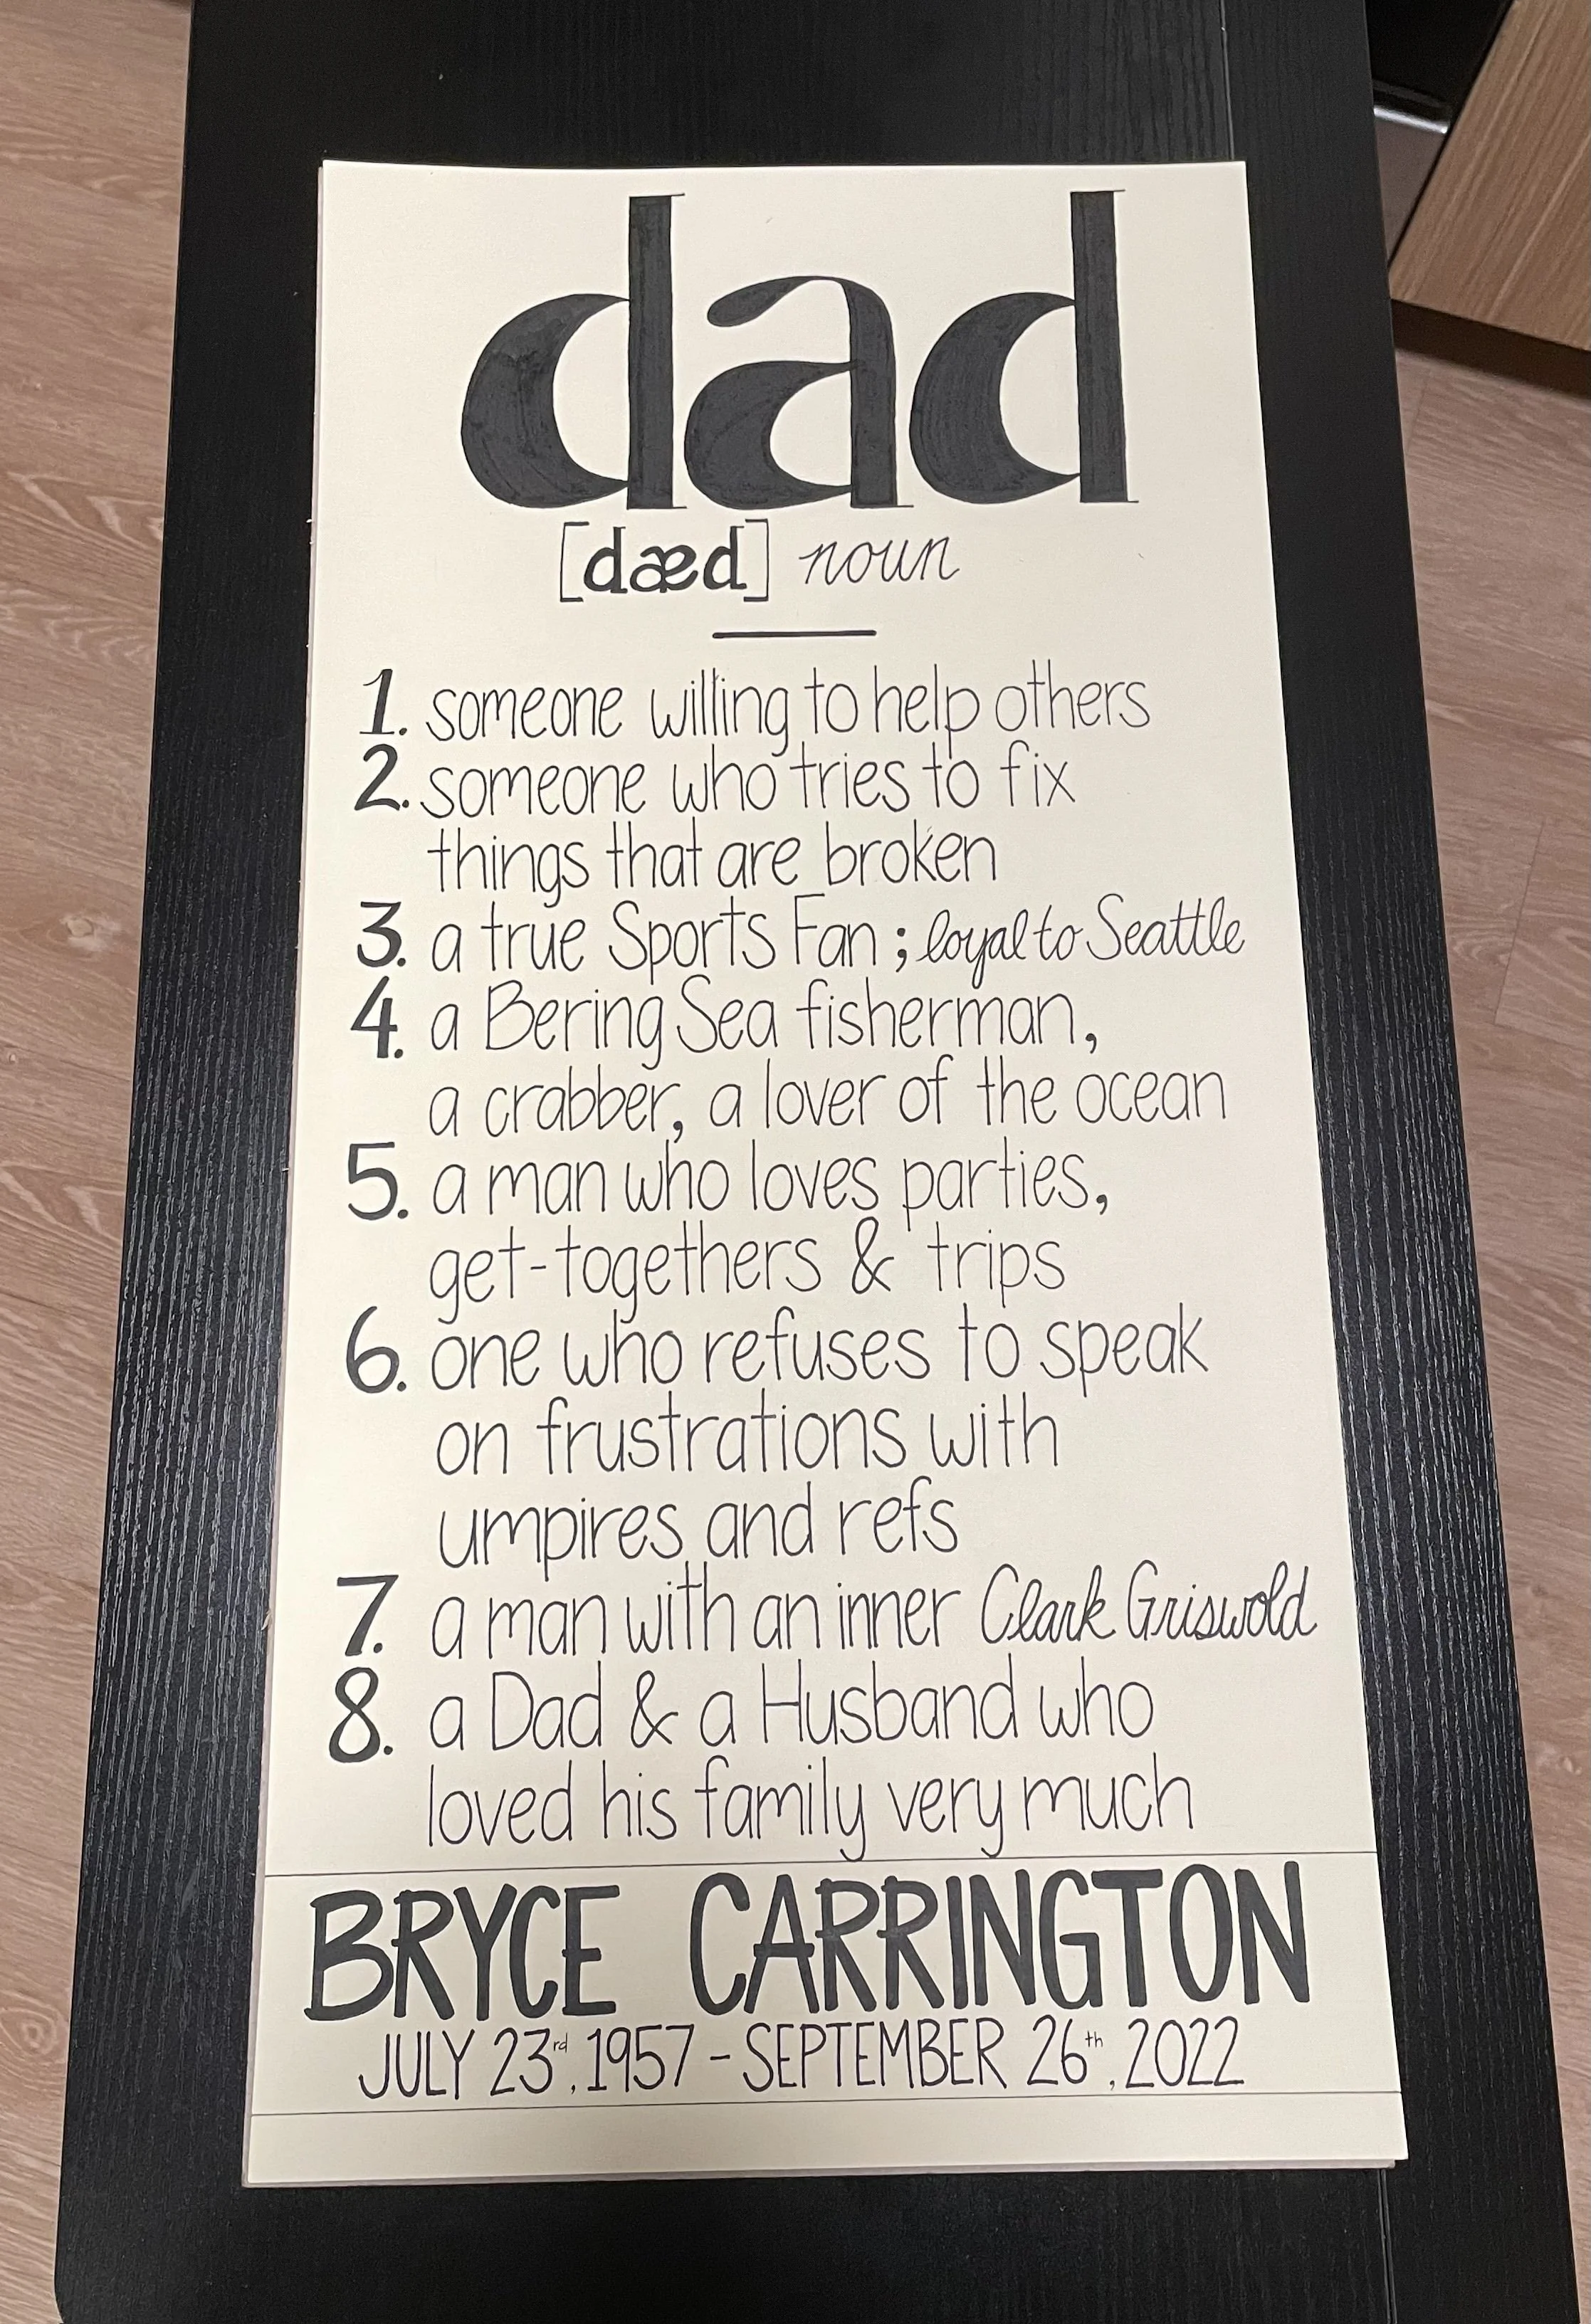 dad
[dæd] noun
1. someone willing to help others
2. someone who tries to fix
things that are broken
3. a true Sports Fan ; loyal to Seattle
4. a Bering Sea fisherman,
a crabber, a lover of the ocean
5. a man who loves parties,
get-togethers & trips
6. one who refuses to speak
on frustrations with
umpires and refs
7. a man with an inner Clark Griswold
8. a Dad & a Husband who
loved his family very much
BRYCE CARRINGTON
JULY 23rd, 1957 - SEPTEMBER 26th, 2022